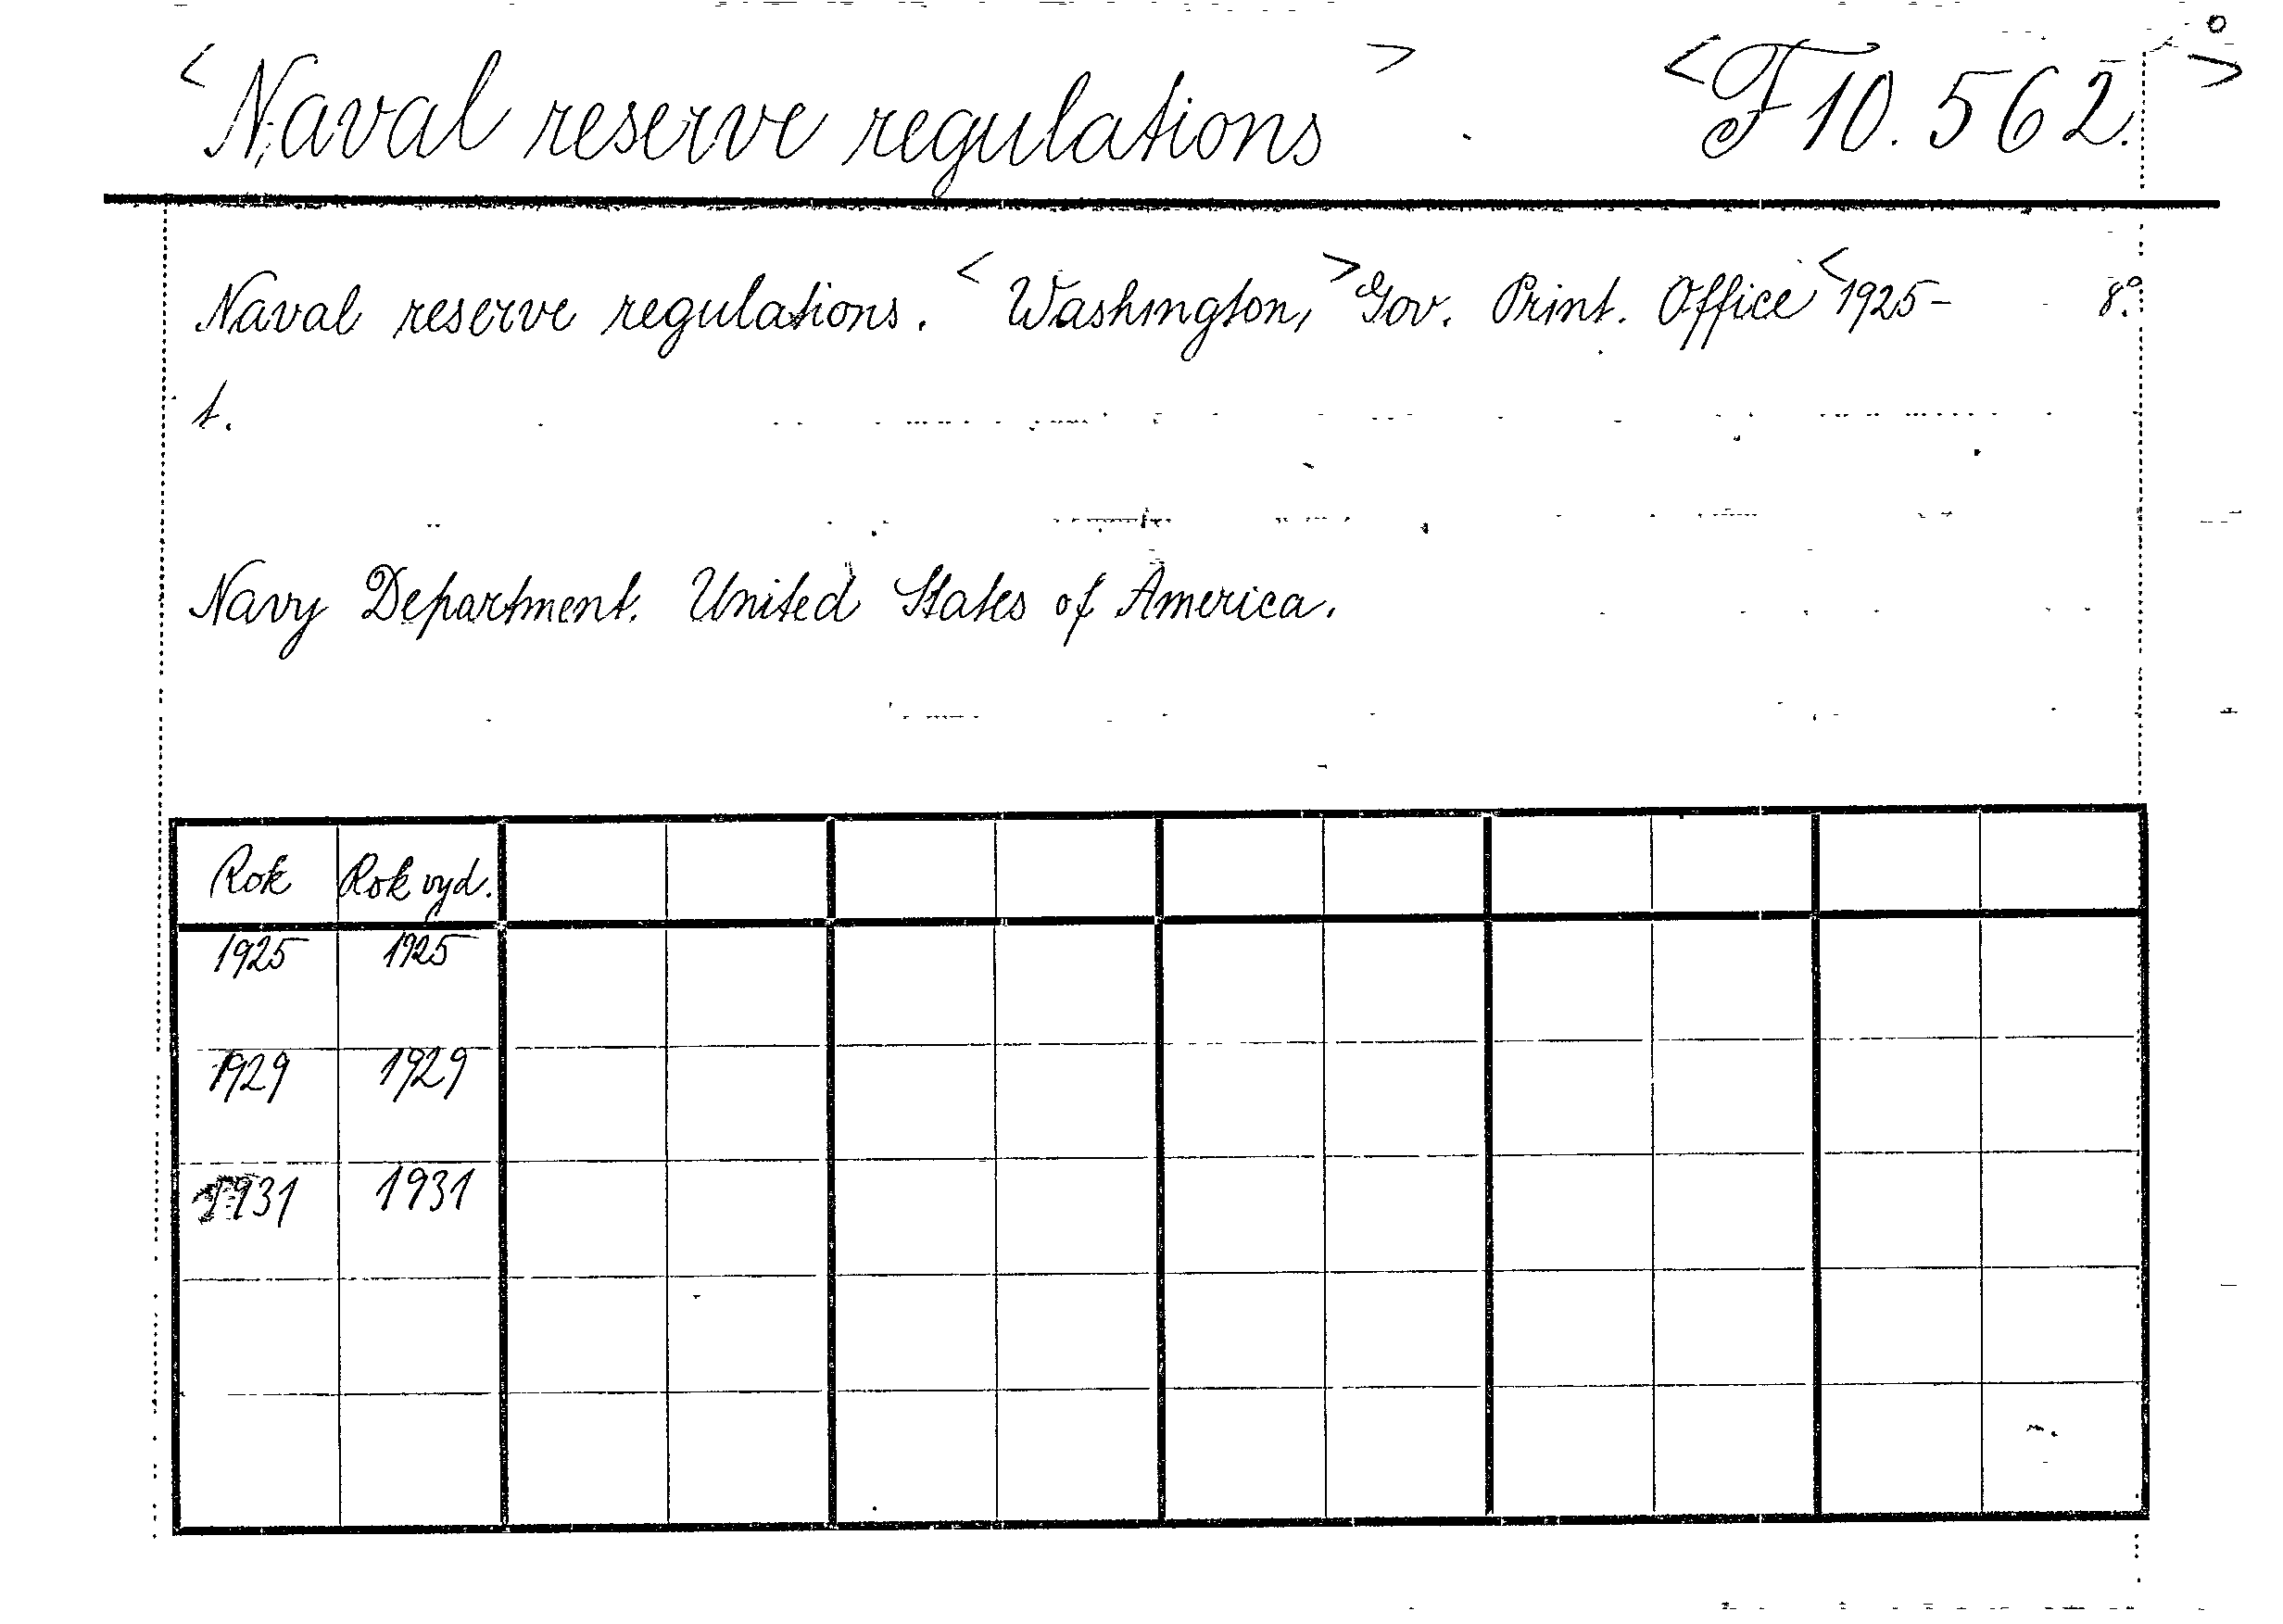 <Naval reserve regulations> <F 10.562.>
Naval reserve regulations. <Washington,> Gov. Print. Office <1925- 8°.
t.
Navy Department. United States of America.
Rok Rok vyd.
1925 1925
1929 1929
1931 1931